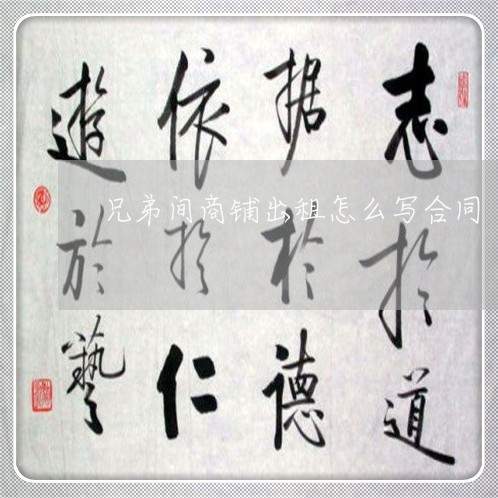 志扵道
据於德
依扵仁
遊於藝
兄弟间商铺出租怎么写合同